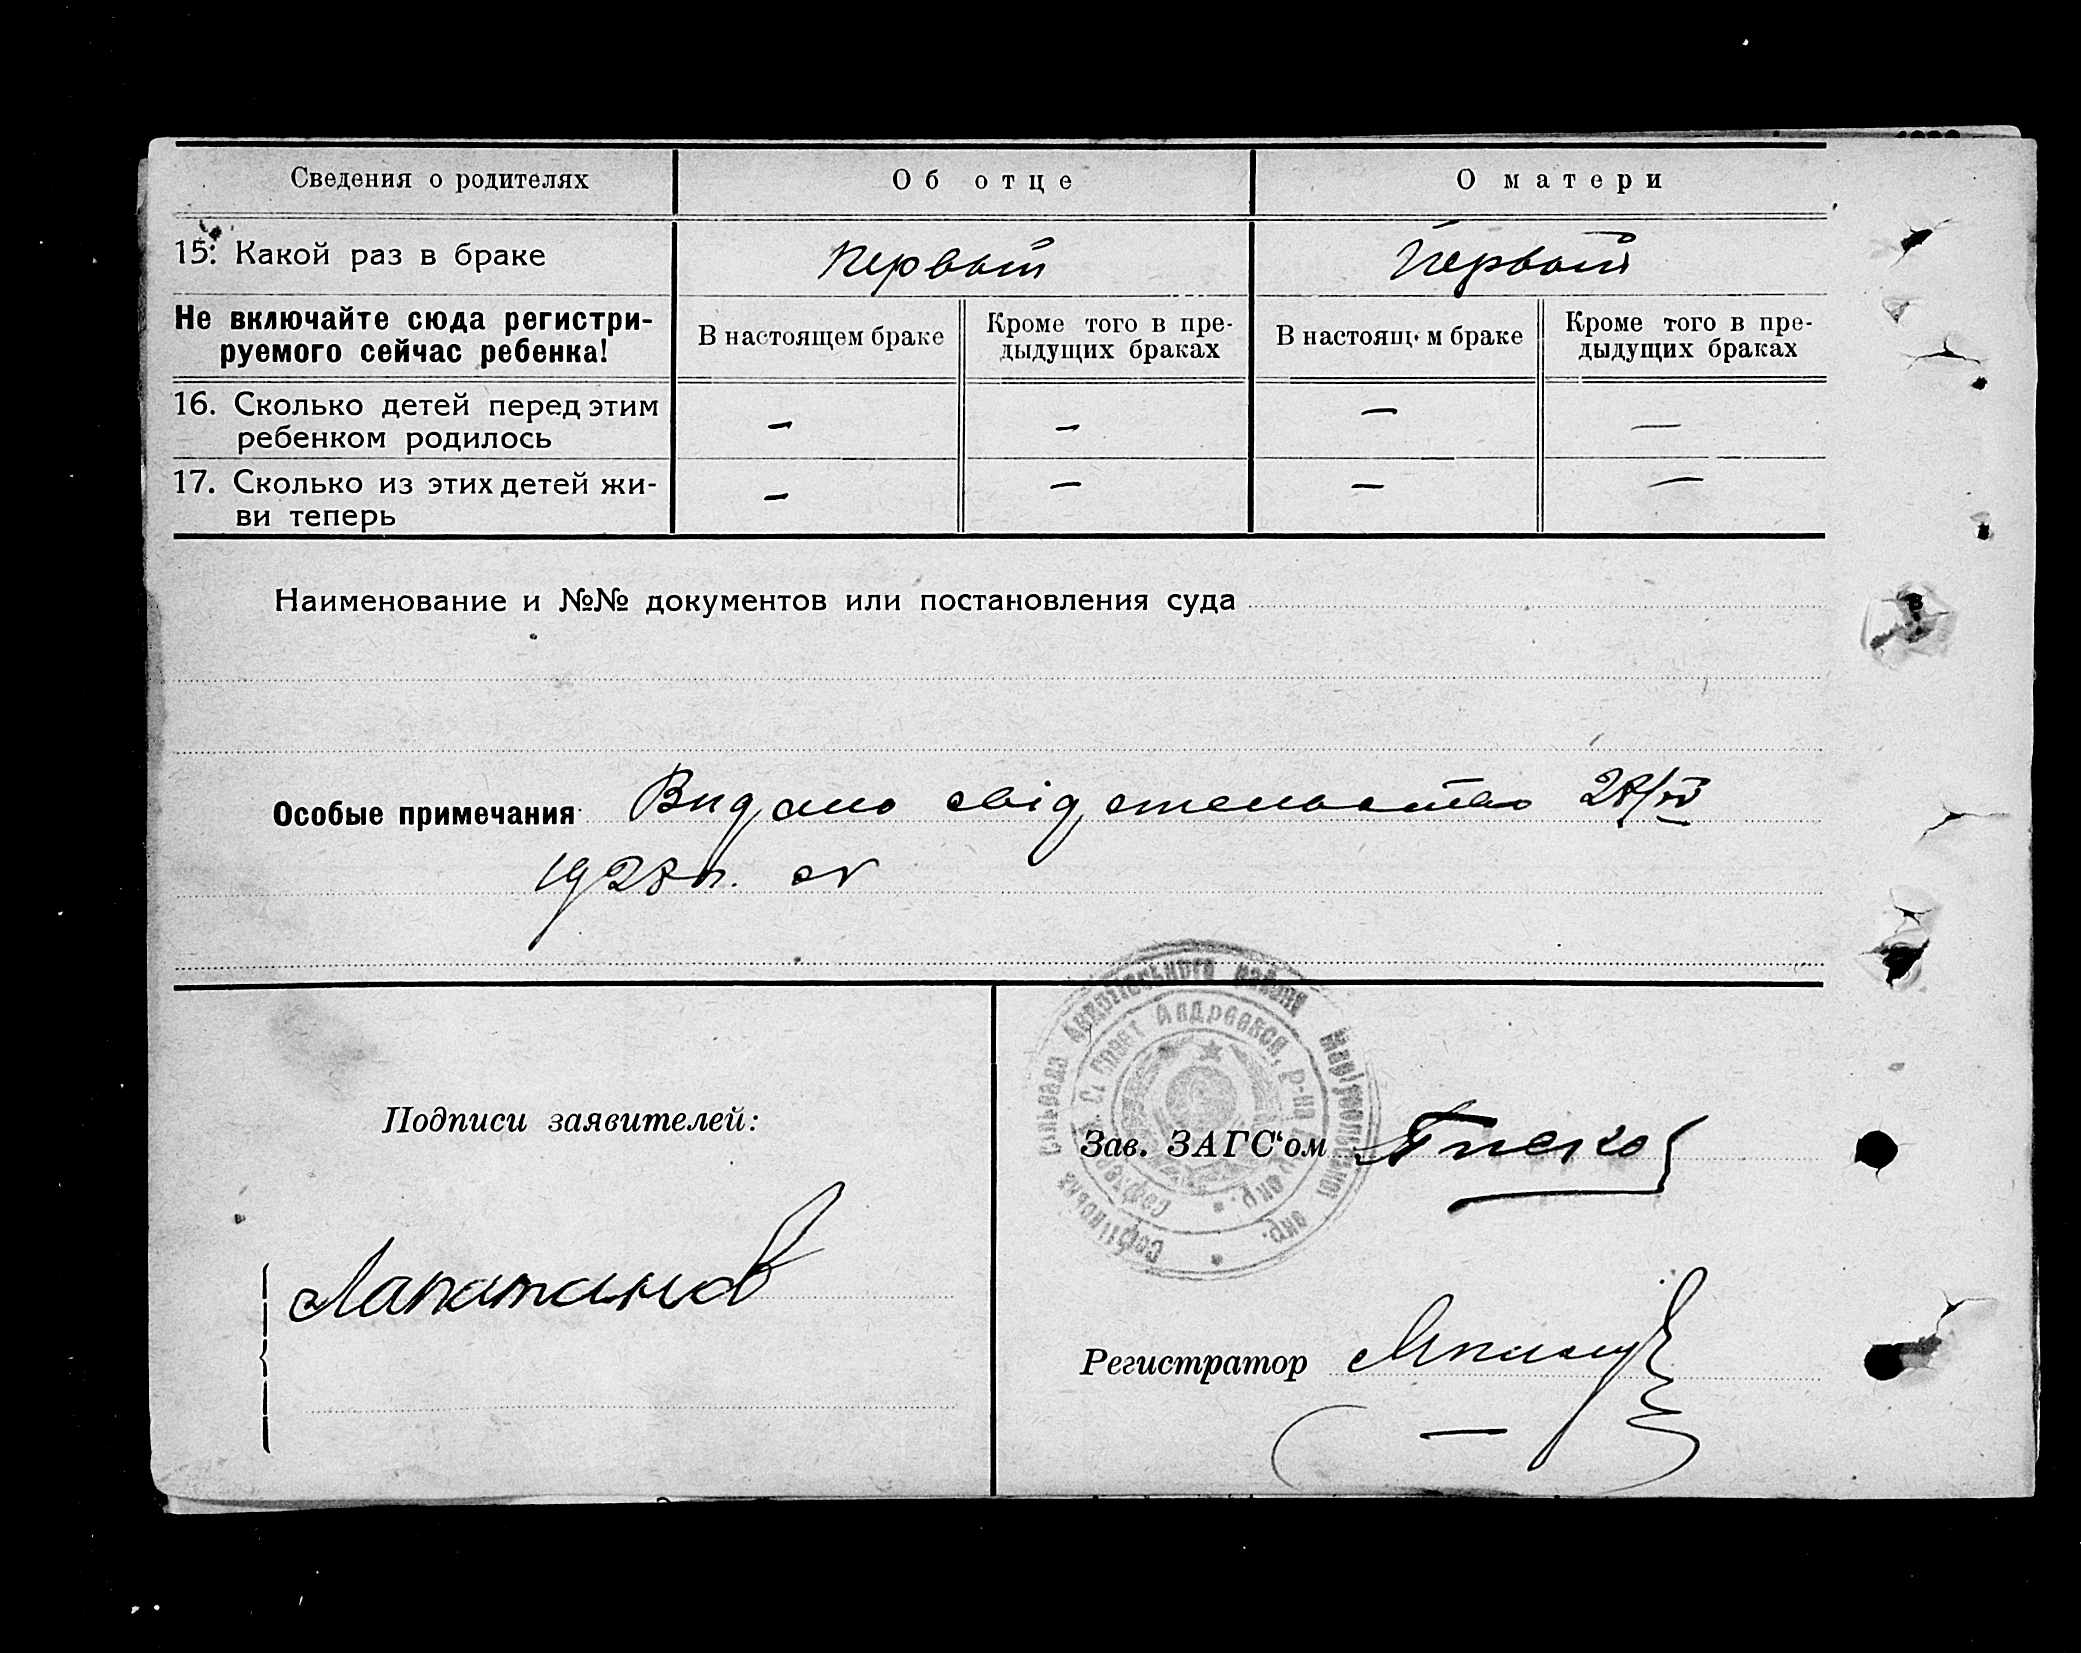 Сведения о родителях
Об отце
О матери
15. Какой раз в браке
Первый
Первый
Не включайте сюда регистри-
руемого сейчас ребенка!
В настоящем браке
Кроме того в пре-
дыдущих браках
В настоящ м браке
Кроме того в пре-
дыдущих браках
16. Сколько детей перед этим
ребенком родилось
— — — —
17. Сколько из этих детей жи-
ви теперь
— — — —
Наименование и №№ документов или постановления суда
Особые примечания
Видано свідетельство 28/
1928
Подписи заявителей:
Зав. ЗАГС‘ом
Регистратор